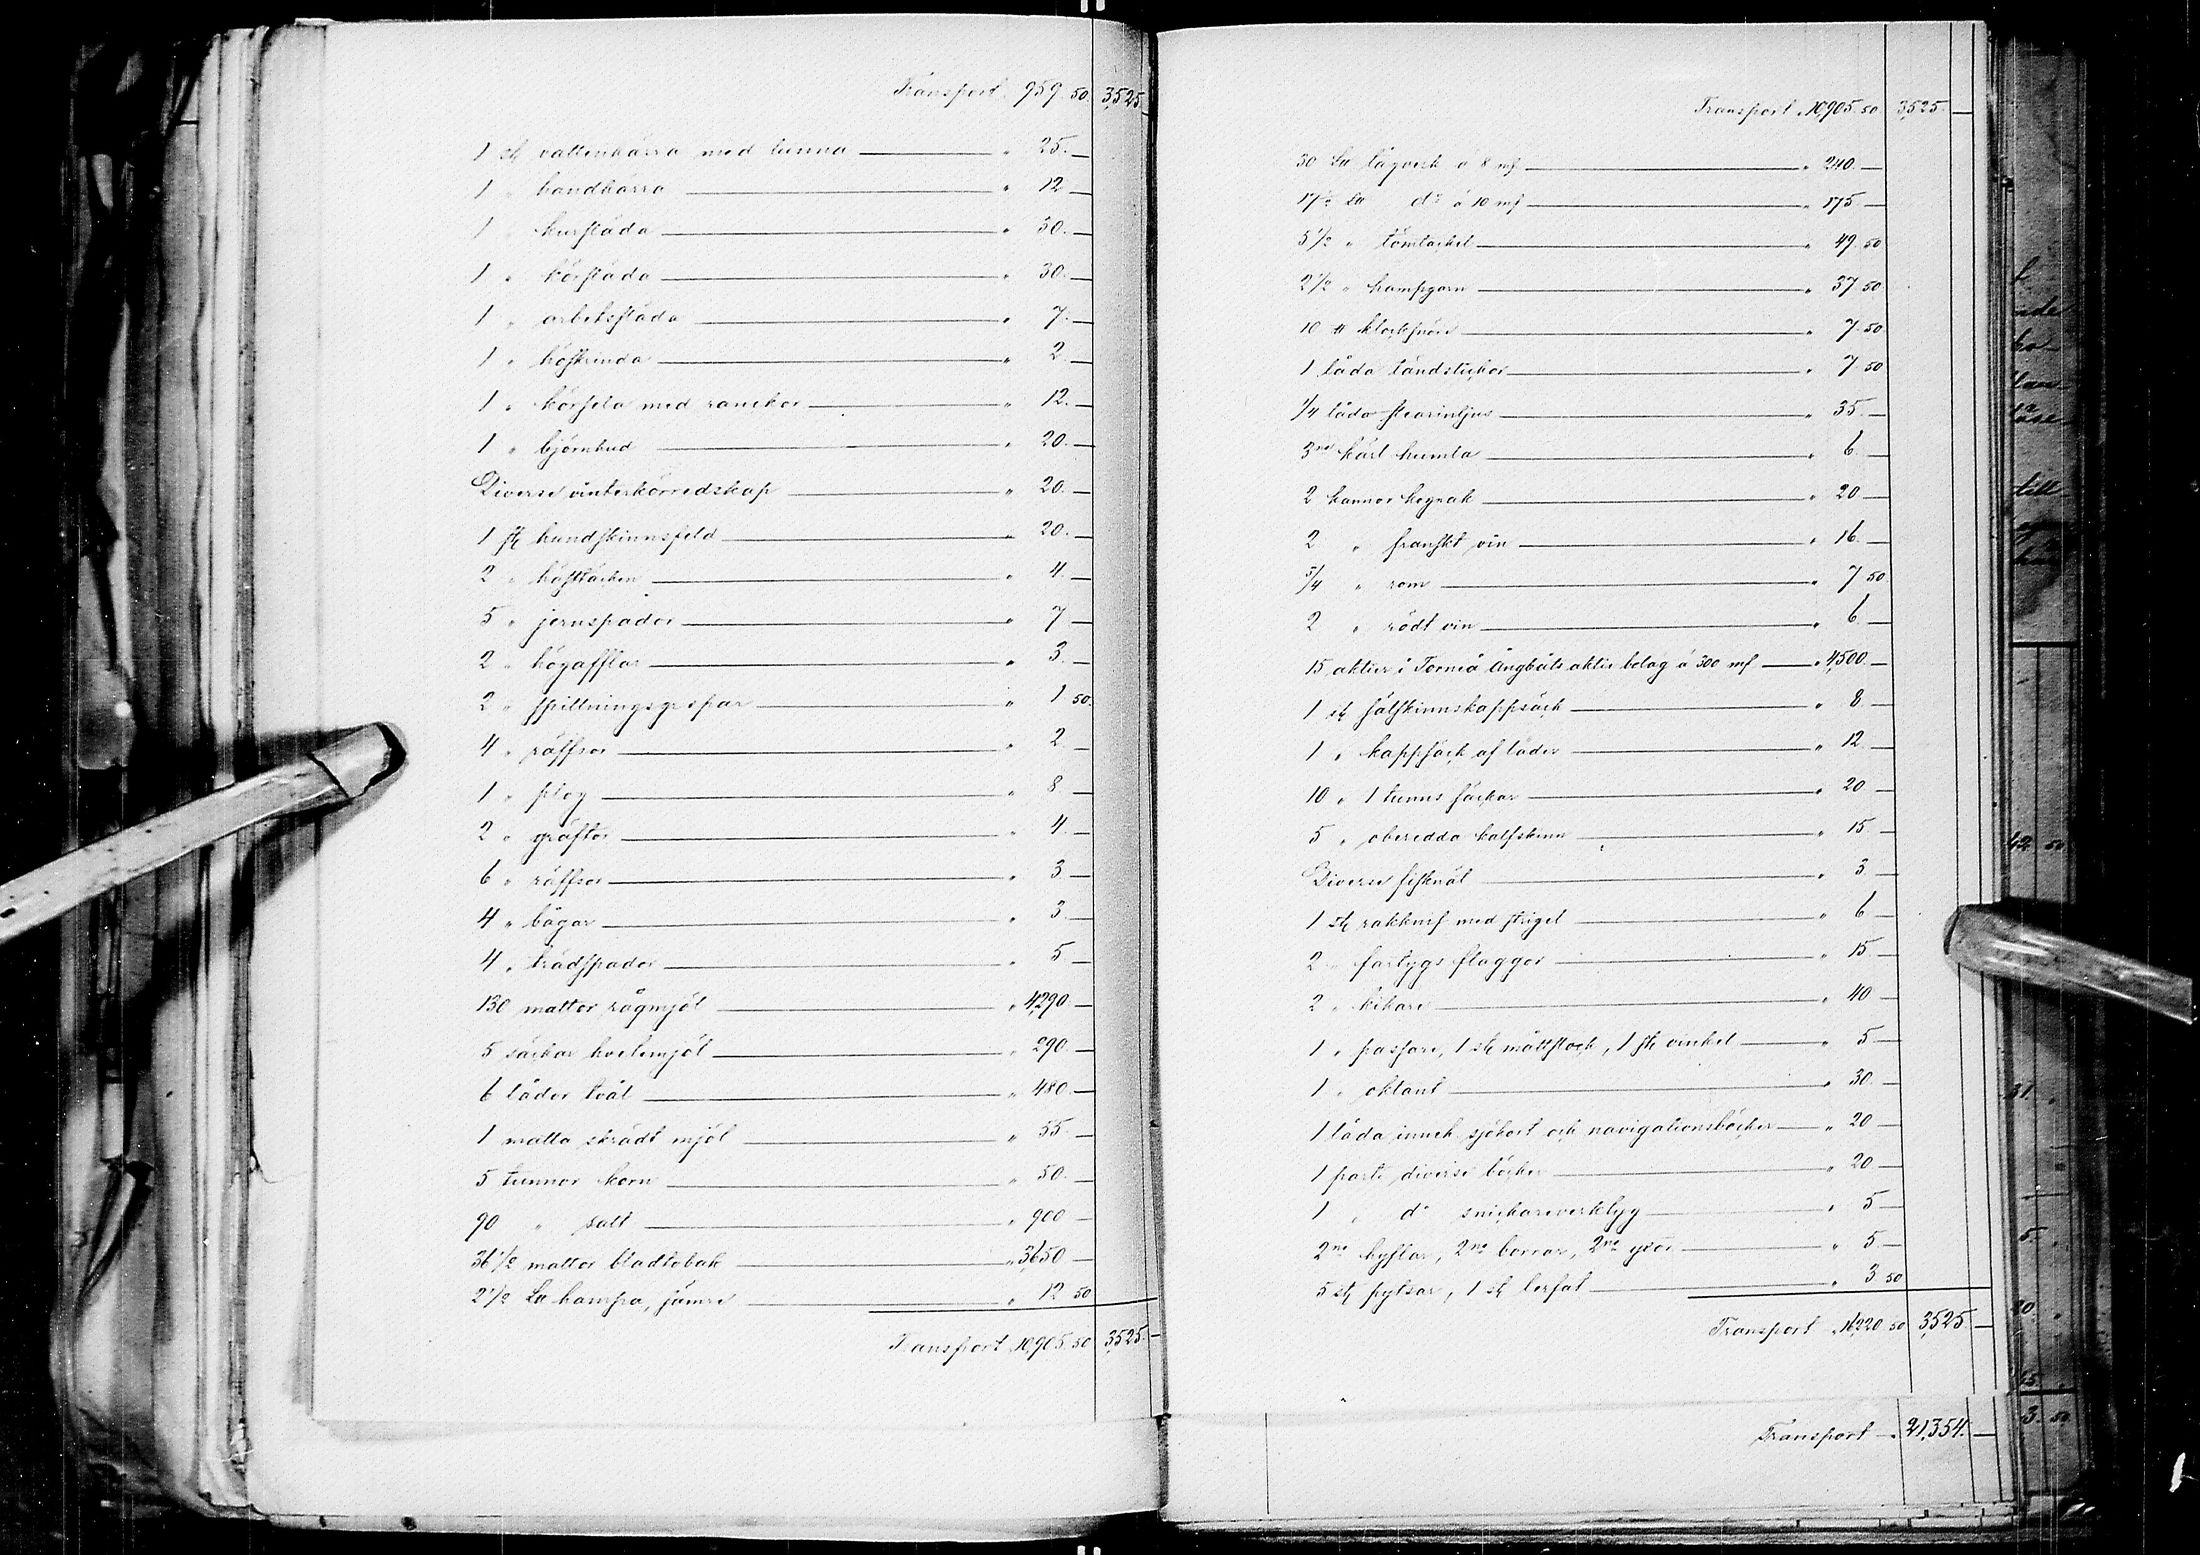 Transport „ 959. 50. 3,525.
1 st vattenkärra med tunna — „ 25. —
1 „ handkärra — „ 12 —
1 „ kursläda — „ 30. —
1 „ körsläda — „ 30. —
1 „ arbetssläda — „ 7. —
1 „ höskrinda — „ 2. —
1 „ körsela med ranckor — „ 12. —
1 „ björnhud — „ 20. —
Diverse vinterkörredskap — „ 20. —
1 st hundskinnsfäld — „ 20. —
2 „ hästtäcken — „ 4. —
5 „ jernspador — „ 7 —
2 „ högafflar — „ 3. —
2 „ spillningsgrepar — „ 1 50.
4 „ räffsor — „ 2. —
1 „ plog — „ 8 —
2 „ gräftor — „ 4. —
6 „ räffsor — „ 3. —
4 „ bågar — „ 3. —
4 „ trädspador — „ 5 —
130 mattor rågmjöl — „ 4,290. —
5 säckar hvetemjöl — „ 290. —
6 lådor tvål — „ 480. —
1 matta skrädt mjöl — „ 55. —
5 tunnor korn — „ 50. —
90 „ salt — „ 900 —
36 1/2 mattor bladtobak — „ 3,650 —
2 1/2 Lu hampa, sämre — „ 12 50
Transport „ 10,905. 50 3,525. —
Transport „ 10,905. 50. 3,525. —
30 Lu tågverk á 8 mf — „ 240. —
17 1/2 Lu do á 10 mf — „ 175 —
5 1/2 „ tömtackel — „ 49. 50
2 1/2 „ hampgarn — „ 37. 50
10 # klocksnöre — „ 7. 50
1 låda tändstickor — „ 7 50
1/4 låda stearinljus — „ 35. —
3ne kärl humla — „ 6. —
2 kannor kognak — „ 20 —
2 „ franskt vin — „ 16. —
5/4 „ rom — „ 7 50
2 „ rödt vin — „ 6. —
15 aktier i Torneå Ångbåts aktie bolag á 300 mf — „ 4,500. —
1 st sälskinnskappsäck — „ 8. —
1 „ kappsäck af läder — „ 12. —
10 „ 1 tunns säckar — „ 20 —
5 „ oberedda kalfskinn — „ 15 —
Diverse fisknät — „ 3 —
1 st rakknif med strigel — „ 6 —
2 „ fartygs flaggor — „ 15 —
2 „ kikare — „ 40 —
1 „ passare, 1 st måttstock, 1 st vinkel — „ 5 —
1 „ oktant — „ 30. —
1 låda inneh. sjökort och navigationsböcker — „ 20 —
1 parti diverse böcker — „ 20 —
1 „ do snickareverktyg — „ 5 —
2ne hyflar, 2ne borrar, 2ne yxor — „ 5 —
5 st pytsar, 1 st lerfat — „ 3 50
Transport „ 16,220. 50 3,525. —
Transport „ 21,354. —